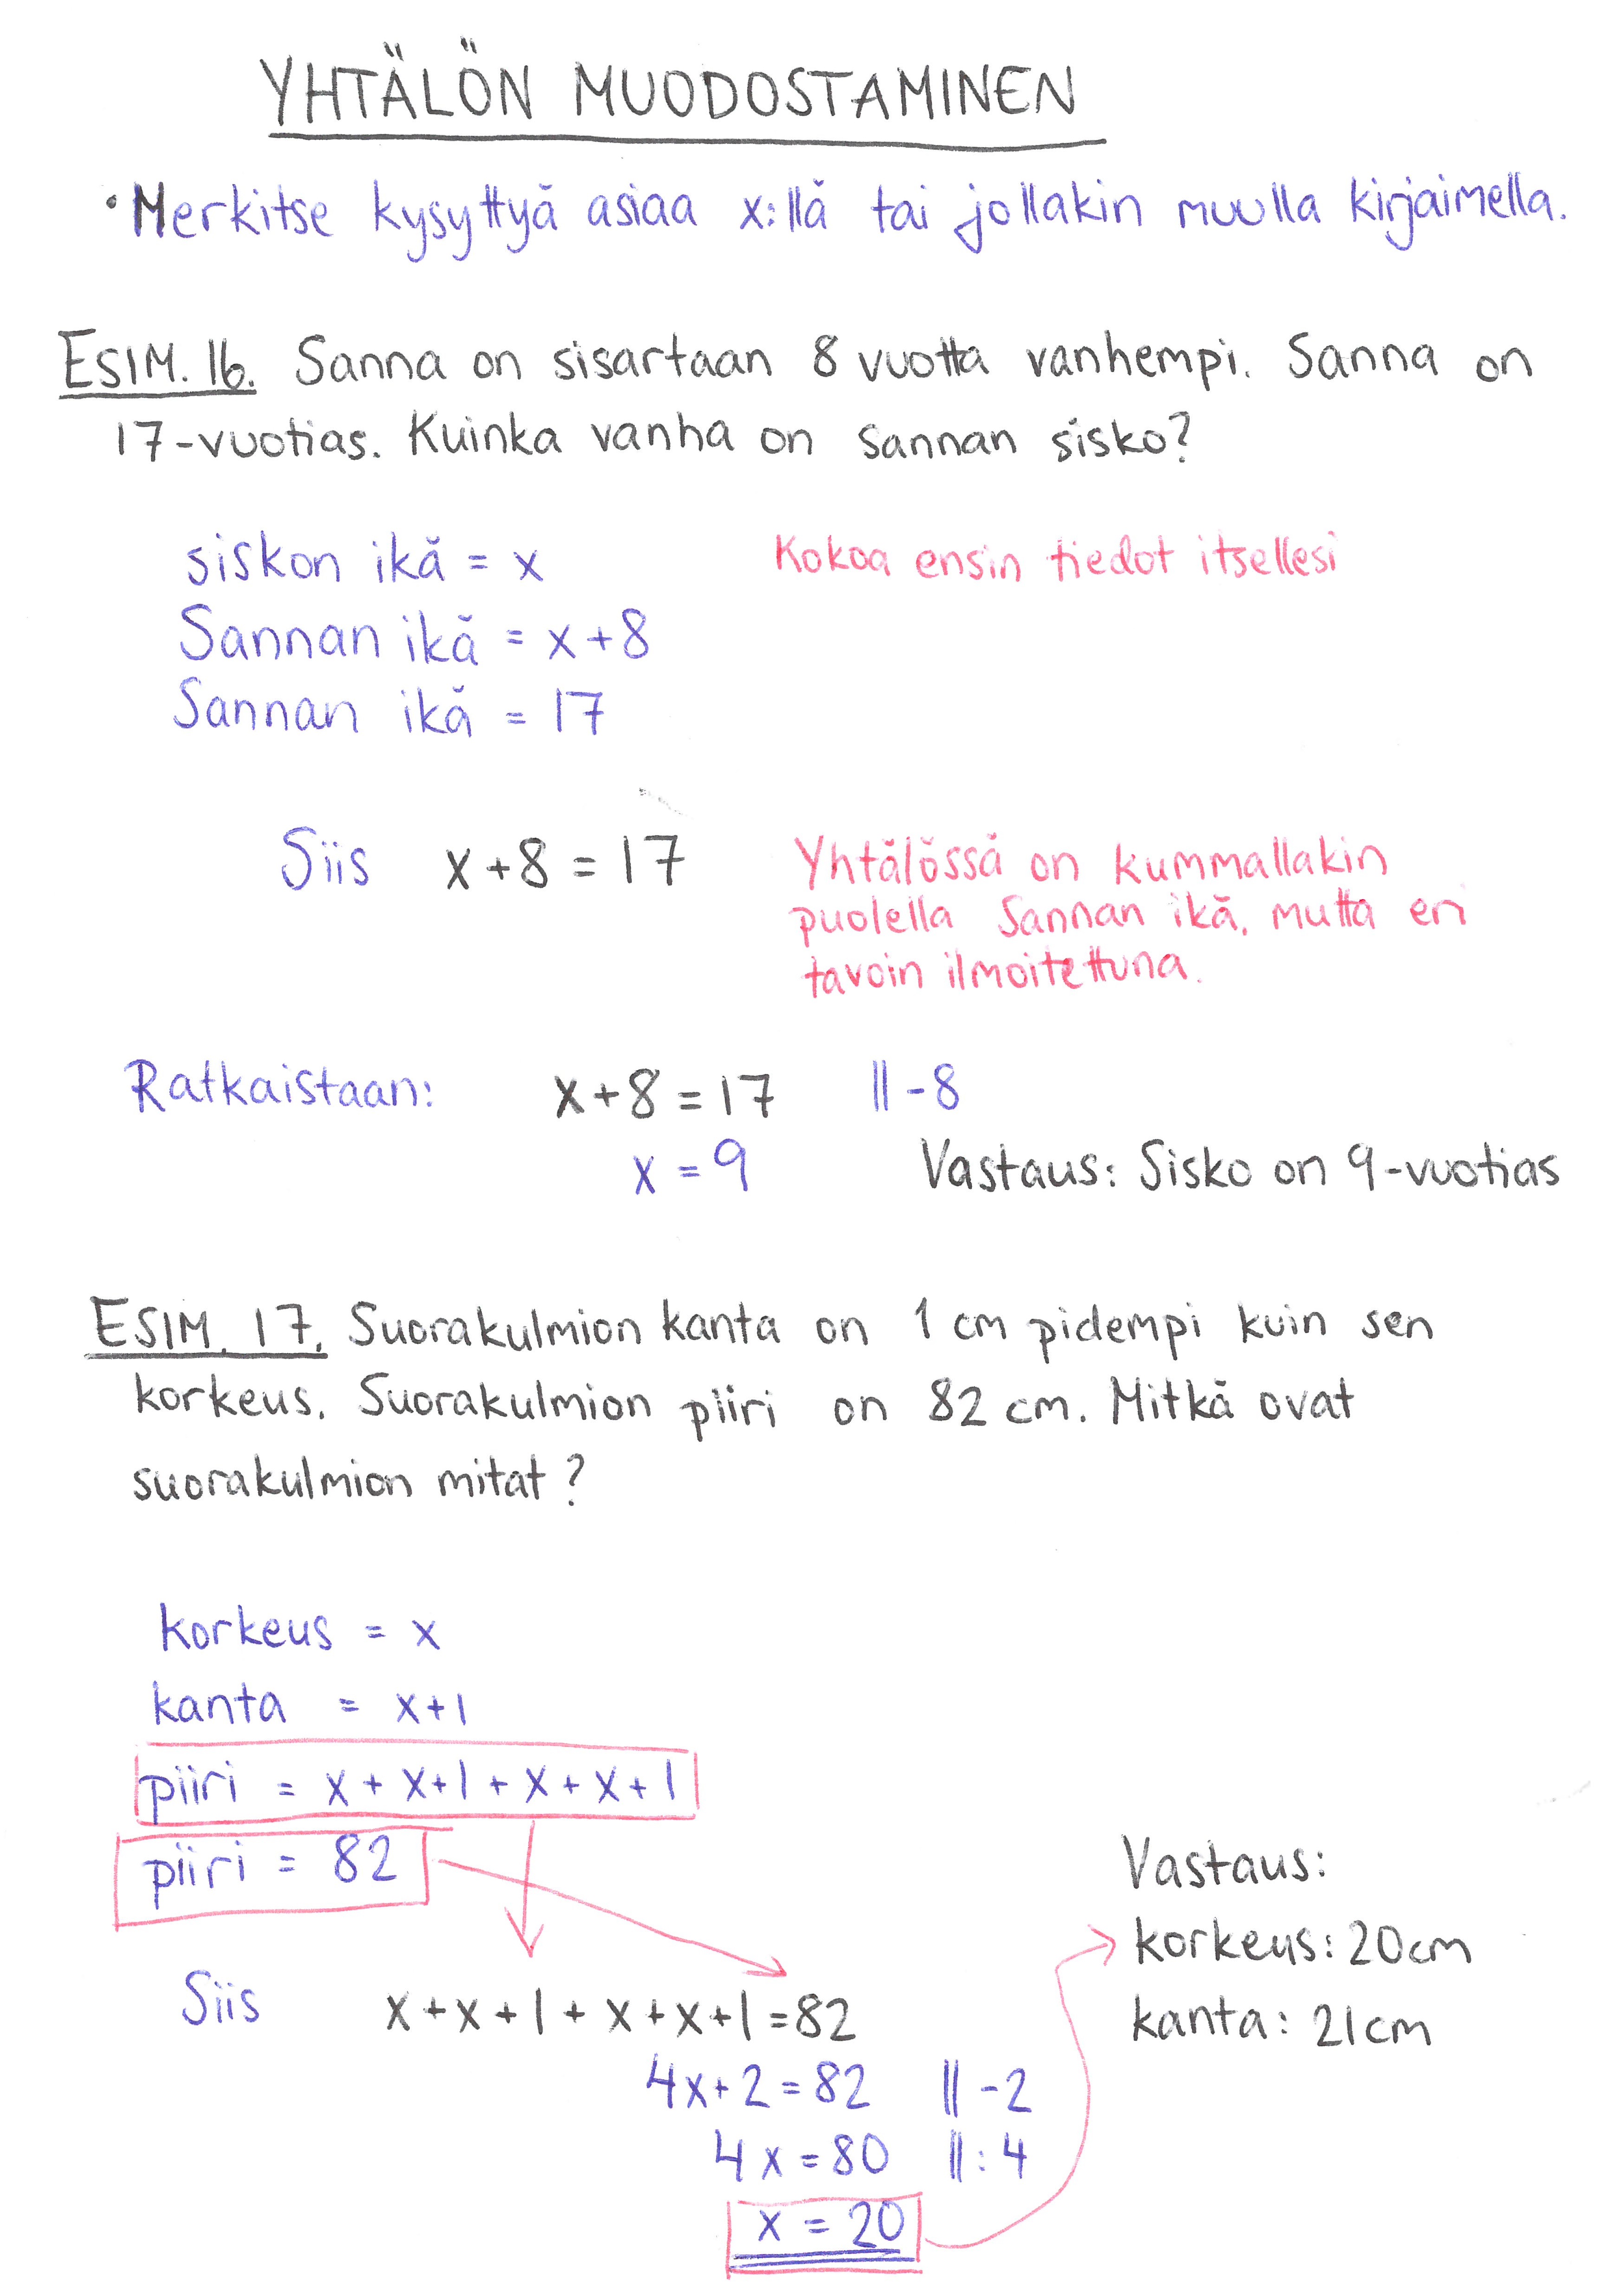 YHTÄLÖN MUODOSTAMINEN
• Merkitse kysyttyä asiaa x:llä tai jollakin muulla kirjaimella.
ESIM. 16. Sanna on sisartaan 8 vuotta vanhempi. Sanna on
17-vuotias. Kuinka vanha on Sannan sisko?
siskon ikä = x
Kokoa ensin tiedot itsellesi
Sannan ikä = x+8
Sannan ikä = 17
Siis x+8 = 17
Yhtälössä on kummallakin
puolella Sannan ikä, mutta eri
tavoin ilmoitettuna.
Ratkaistaan: x+8 = 17 || -8
x = 9 Vastaus: Sisko on 9-vuotias
ESIM. 17. Suorakulmion kanta on 1 cm pidempi kuin sen
korkeus. Suorakulmion piiri on 82 cm. Mitkä ovat
suorakulmion mitat?
korkeus = x
kanta = x+1
piiri = x + x+1 + x + x+1
piiri = 82
Siis x + x + 1 + x + x + 1 = 82
4x + 2 = 82 || -2
4x = 80 || : 4
x = 20
Vastaus:
korkeus: 20cm
kanta: 21cm